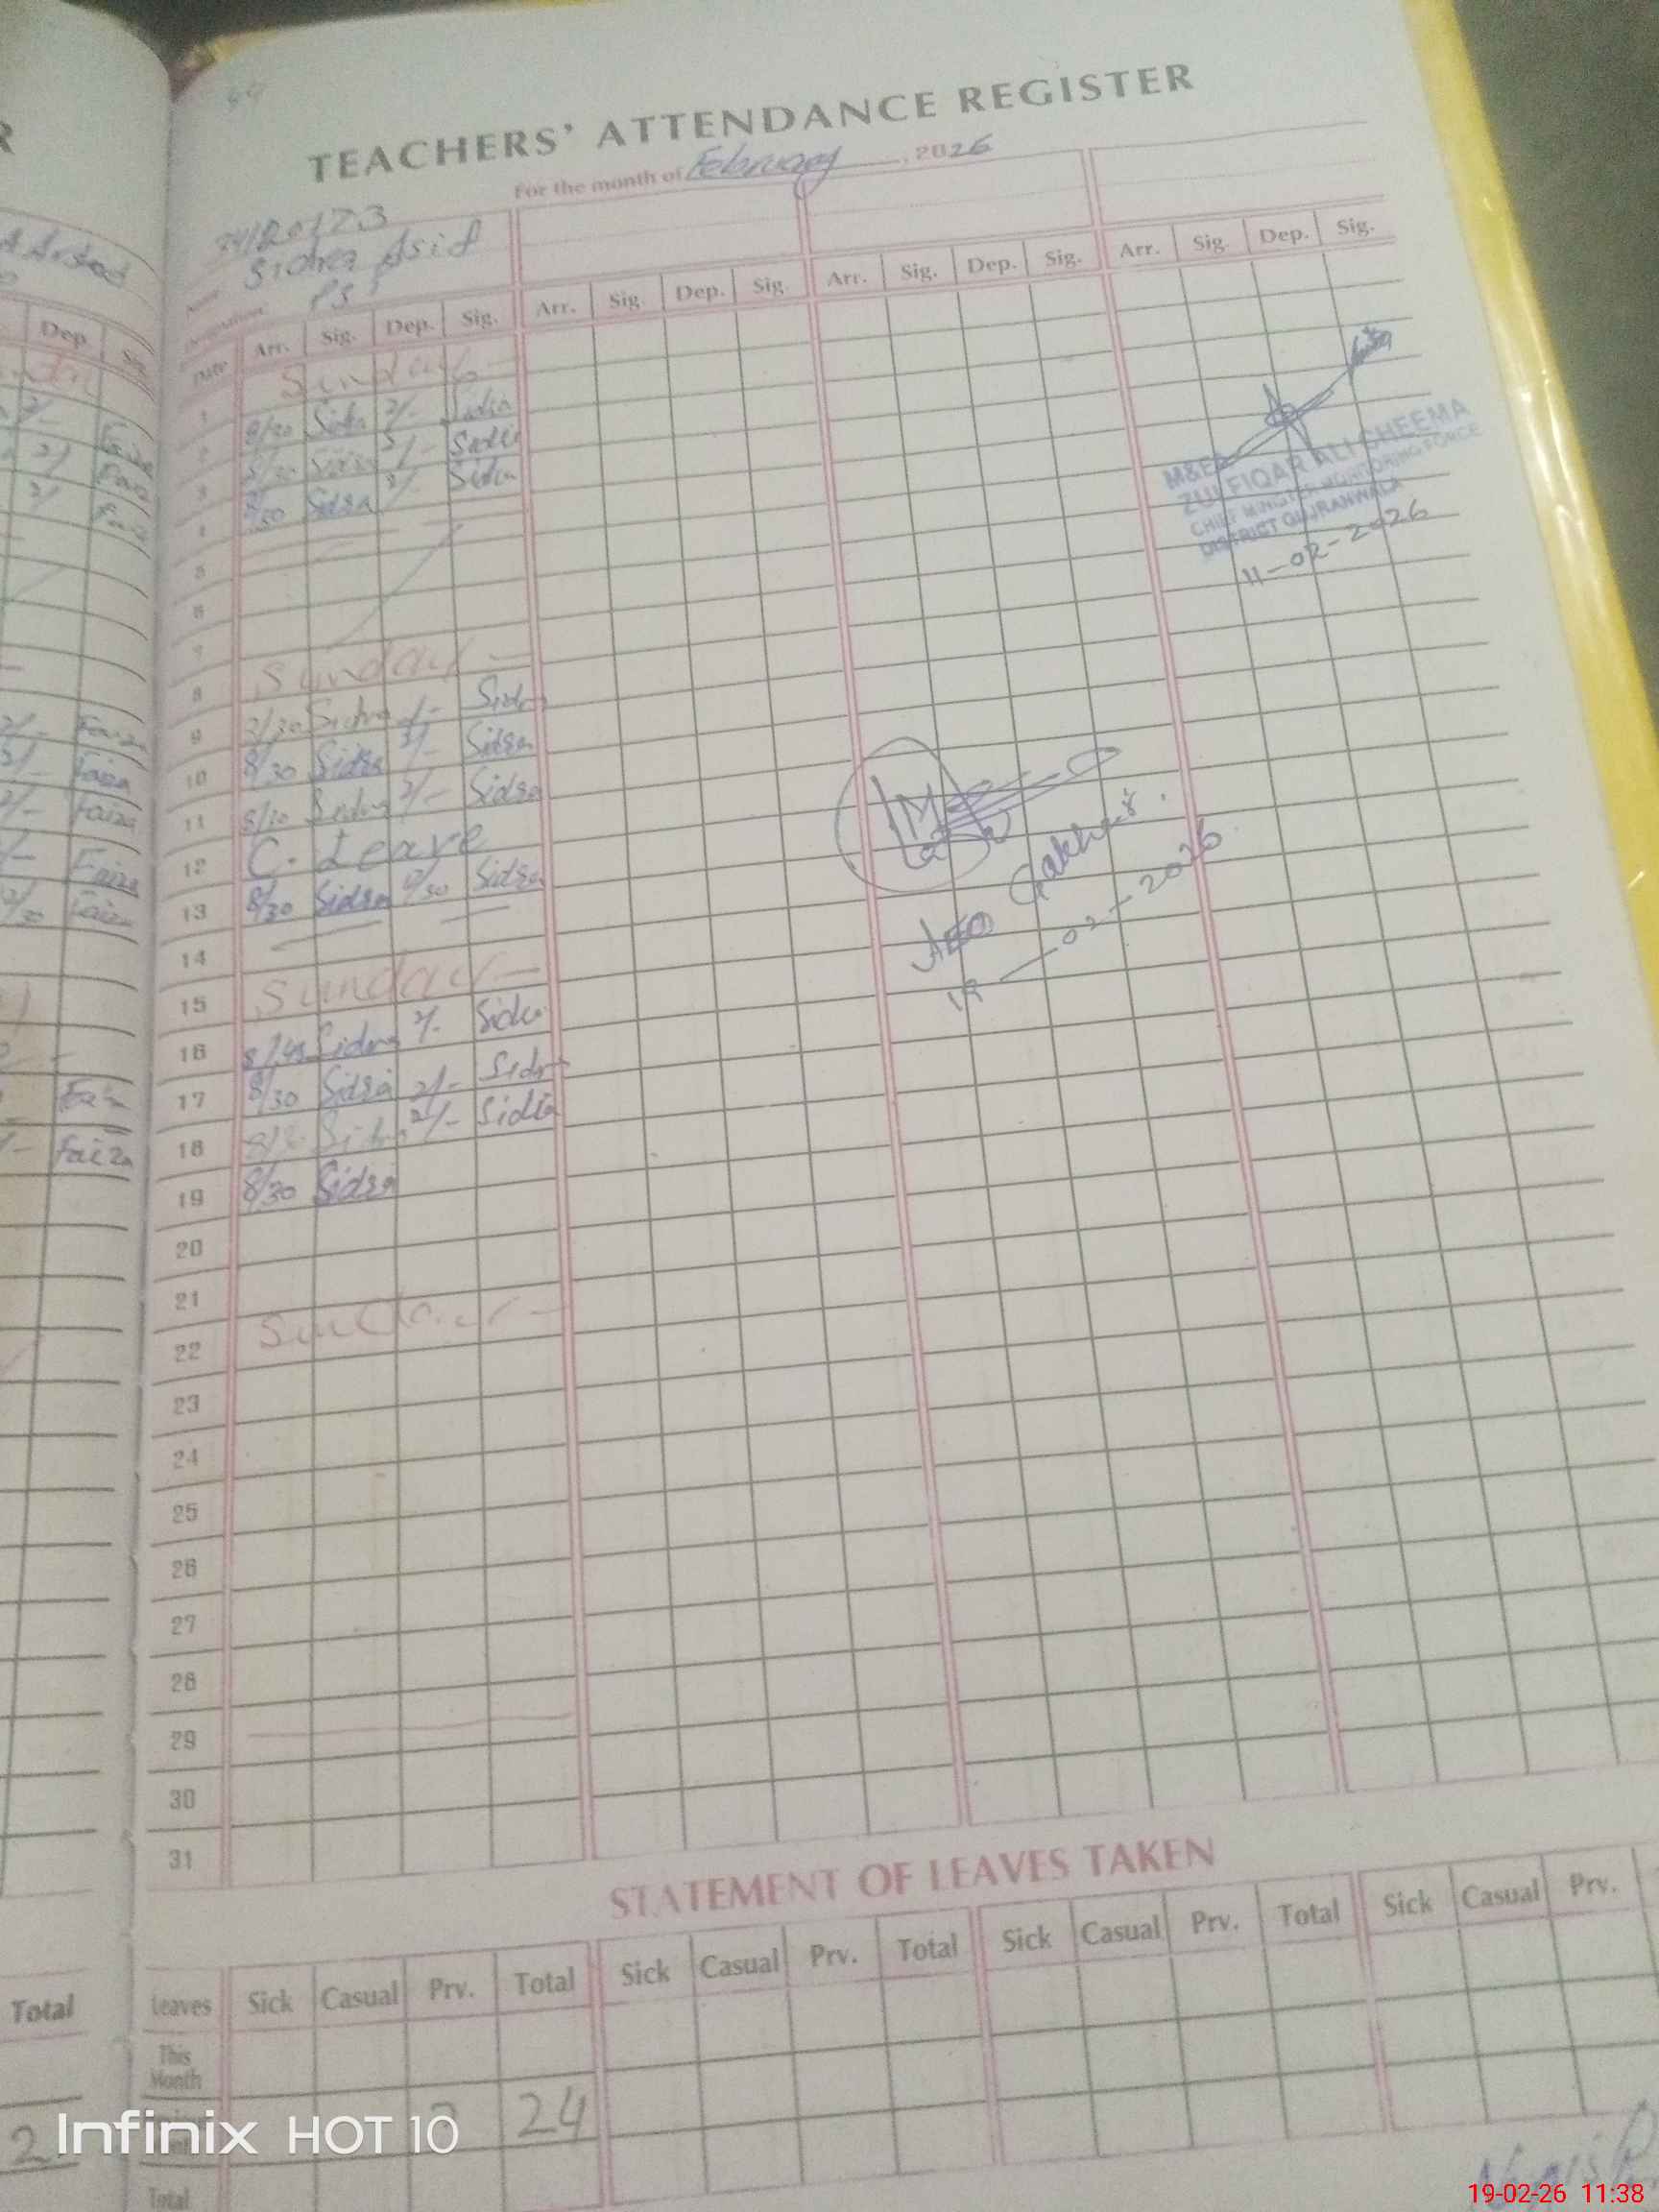 44
TEACHERS' ATTENDANCE REGISTER
For the month of February, 2026
Sidra Asif
Date Arr. Sig. Dep. Sig. Arr. Sig. Dep. Sig. Arr. Sig. Dep. Sig. Arr. Sig. Dep. Sig.
1 Sunday
2 8/30 Sidra 2/- Sidra
3 8/30 Sidra 2/- Sidra
4 8/30 Sidra 2/- Sidra
5
6
7
8 Sunday
9 8/30 Sidra 2/- Sidra
10 8/30 Sidra 2/- Sidra
11 8/30 Sidra 2/- Sidra
12 C. Leave
13 8/30 Sidra 12/30 Sidra
14
15 Sunday
16 8/45 Sidra 2/- Sidra
17 8/30 Sidra 2/- Sidra
18 Sidra 2/- Sidra
19 8/30 Sidra
20
21
22 Sunday
23
24
25
26
27
28
29
30
31
ZULFIQAR ALI CHEEMA
CHIEF MINISTER MONITORING FORCE
DISTRICT GUJRANWALA
11-02-2026
AEO Gakhar
02-2026
STATEMENT OF LEAVES TAKEN
Leaves Sick Casual Prv. Total Sick Casual Prv. Total Sick Casual Prv. Total Sick Casual Prv.
This Month
24
Total
Dep.
Faiza
Faiza
Faiza
Faiza
Faiza
Faiza
Total
2
Infinix HOT 10
19-02-26 11:38